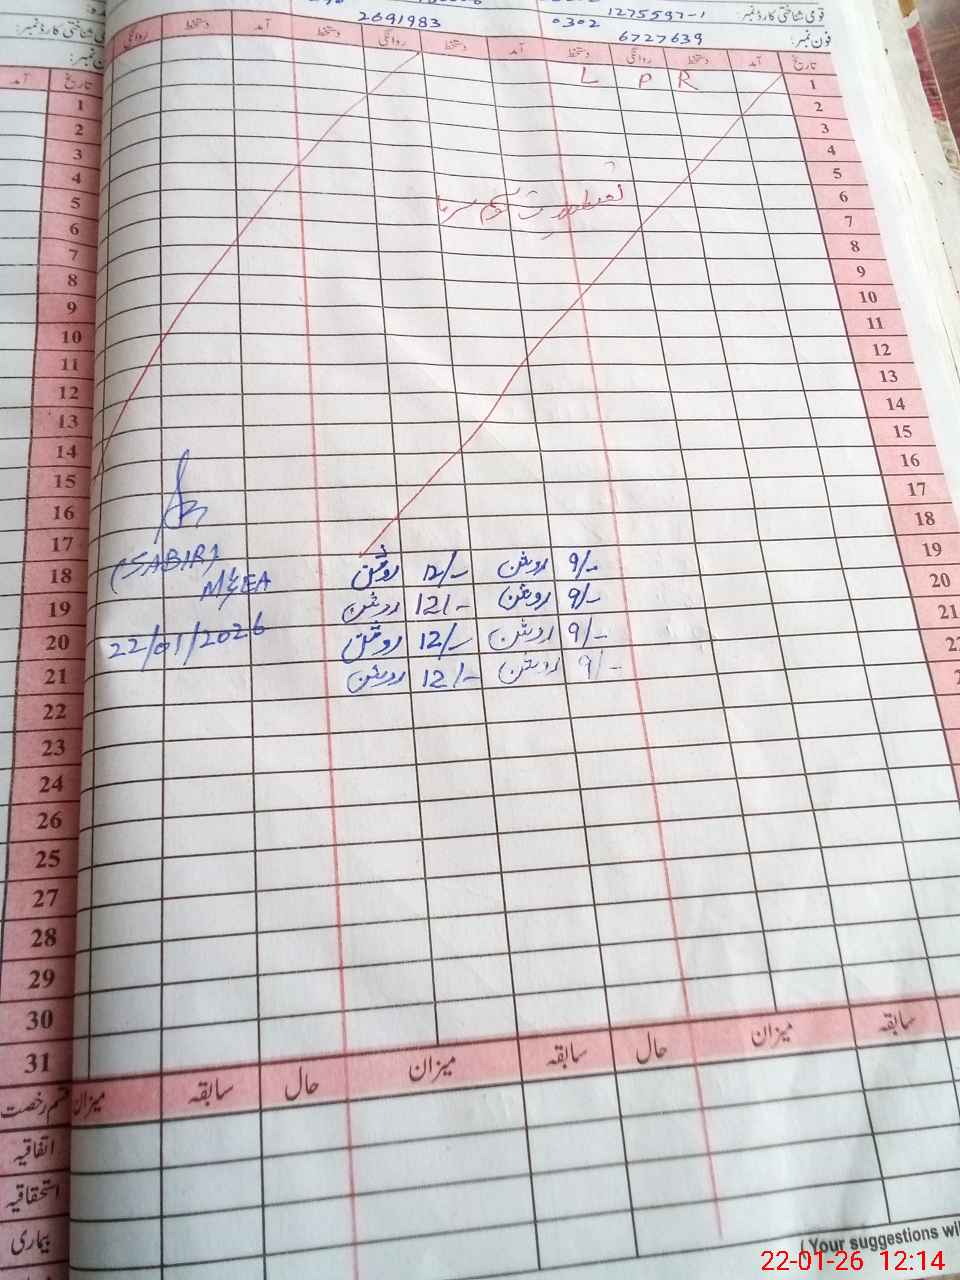 قومی شناختی کارڈ نمبر: 1275597-1
فون نمبر: 0302 6727639
2691983
تاریخ آمد دستخط روانگی دستخط آمد دستخط روانگی دستخط آمد دستخط روانگی
تاریخ آمد
L P R
1
2
3
4
5
6
7
8
9
10
11
12
13
14
15
16
17
18
19
20
21
تعطیلات موسم سرما
1
2
3
4
5
6
7
8
9
10
11
12
13
14
15
16
17
18
19
20
21
22
23
24
25
26
27
28
29
30
31
9/- روشن 12/- روشن
9/- روشن 12/- روشن
9/- روشن 12/- روشن
9/- روشن 12/- روشن
(SABIR)
MEA
22/01/2026
سابقہ میزان حال سابقہ میزان حال سابقہ میزان
قسم رخصت
اتفاقیہ
استحقاقیہ
بیماری
(Your suggestions
22-01-26 12:14